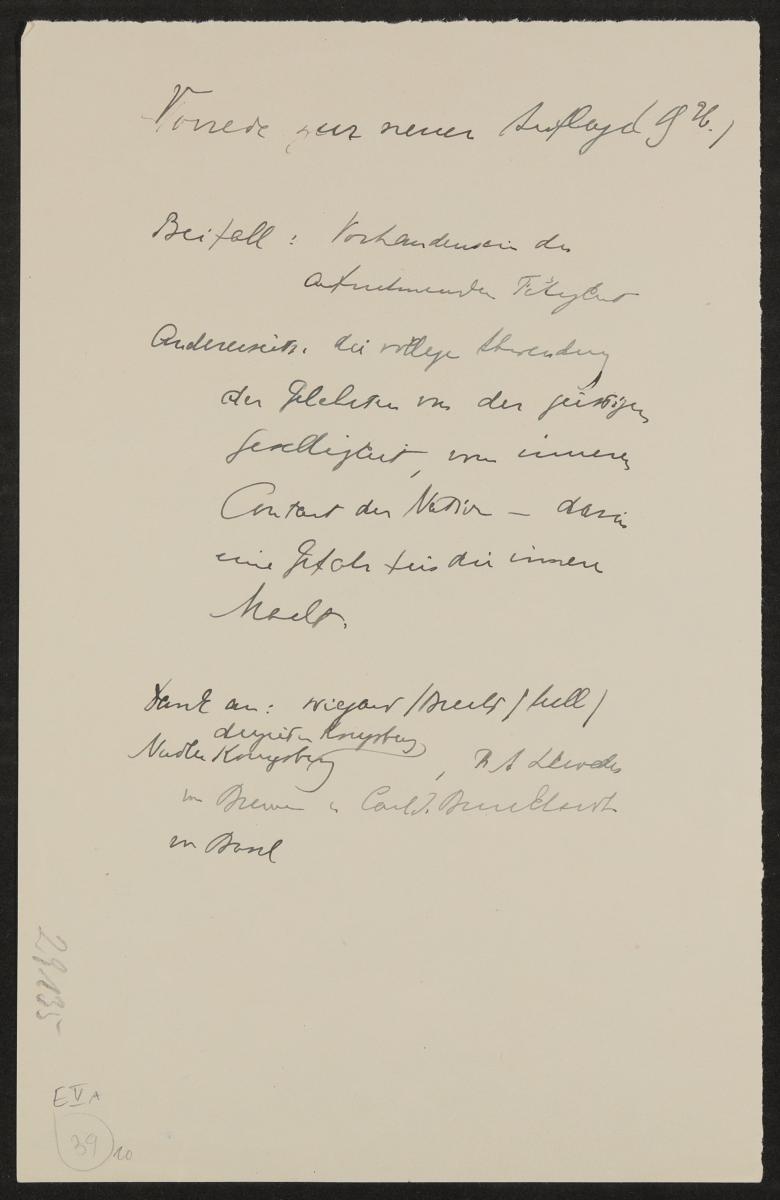 Vorrede zur neuen Auflage (9 H.)
Beifall: Vorhandensein der
aufnehmenden Fähigkeit
Andererseits: die völlige Abwendung
der Gelehrten von der geistigen
Geselligkeit, vom inneren
Contact der Nation – darin
eine Gefahr für die innere
Macht.
Dank an: Wiegand / Brecht /
Königsberg
Nadler Königsberg, R A
in Bremen u Carl J. Burckhardt
in Basel
29135
E V A
39 10